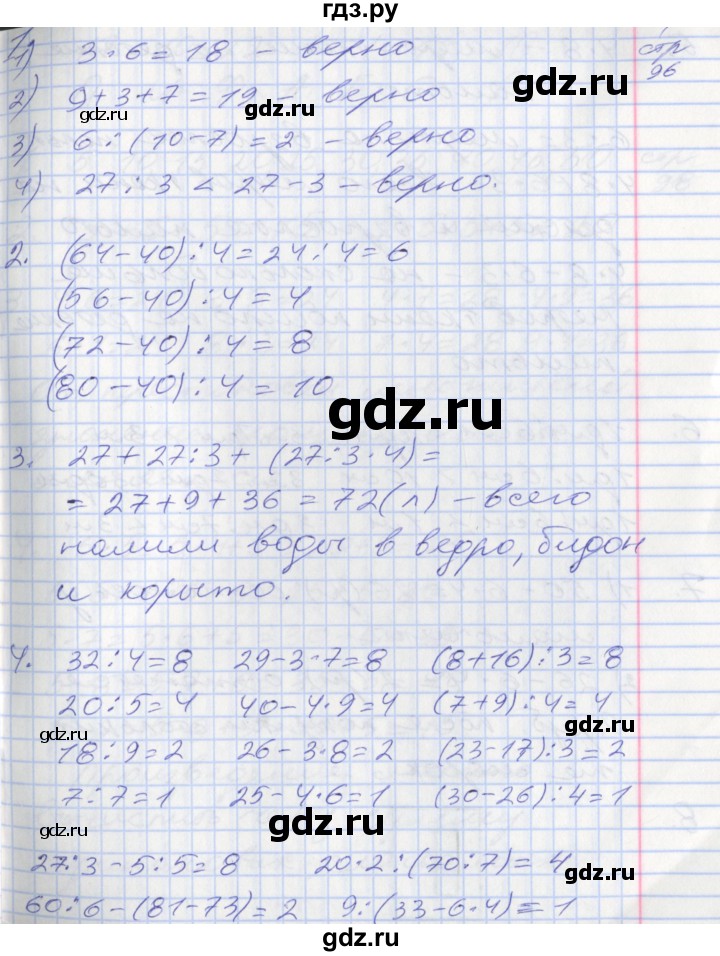 гдз.ру
1.
1) 3·6=18 – верно
стр
96
2) 9+3+7=19 – верно
3) 6:(10-7)=2 – верно
4) 27:3 < 27-3 – верно.
2. (64-40):4=24:4=6
(56-40):4=4
(72-40):4=8
(80-40):4=10
gdz.ru
3. 27+27:3+(27:3·4)=
=27+9+36=72(л) – всего
налили воды в ведро, бидон
и корыто.
4. 32:4=8 29-3·7=8 (8+16):3=8
20:5=4 40-4·9=4 (7+9):4=4
gdz.ru gdz.ru
18:9=2 26-3·8=2 (23-17):3=2
7:7=1 25-4·6=1 (30-26):4=1
gdz.ru
27:3-5:5=8 20·2:(70:7)=4
60:6-(81-73)=2 9:(33-6·4)=1
gdz.ru